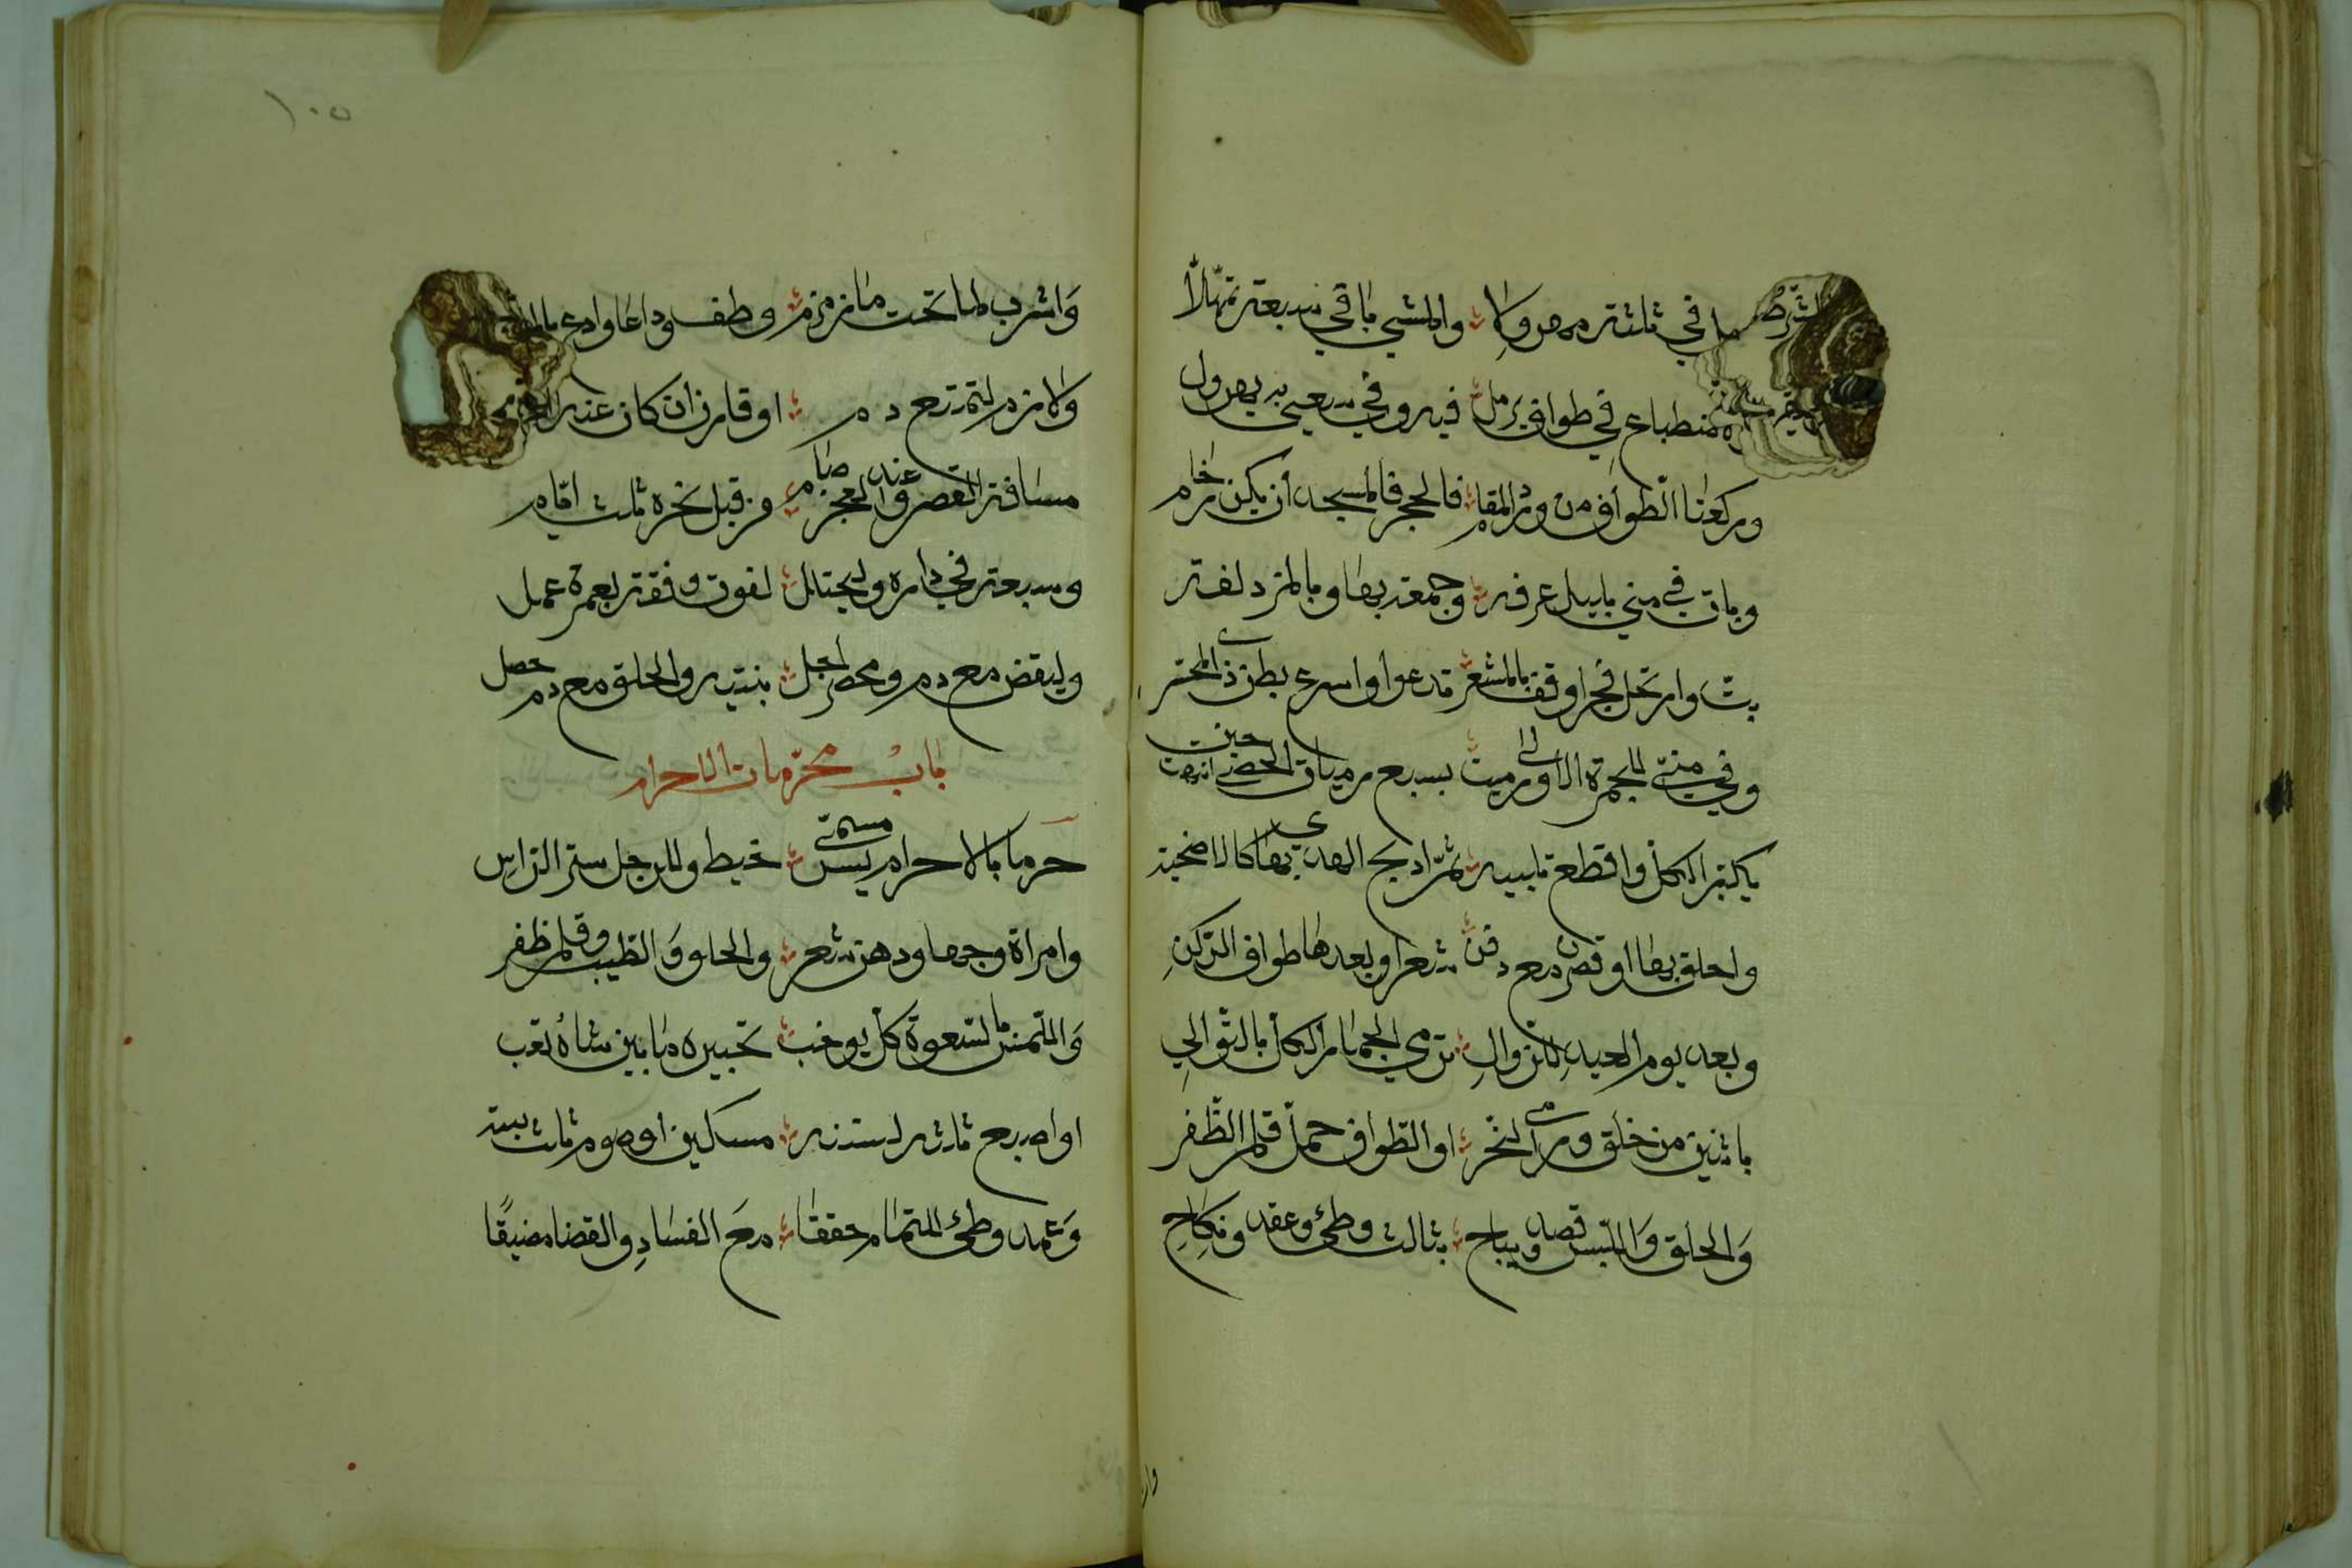 ما في ثلثة مهرولا والمشي باقي سبعة تمهّلا
في طواف يرمل فيه وفي سعي به يهرول
وركعتا الطواف من ورا المقام فالحجر فالمسجد أن يكن زحام
وبات في منى بليل عرفه وجمعه بها وبالمزدلفة
بتّ وارتحل فجرا وقف بالمشعر تدعوا واسرع بطن ذي المحتر
وفي منى للجمرة الاولى رميت بسبع رميات الحصى حين انتهيت
يكبر الكل واقطع تلبيه ثمّ اذبح الهدي بها كالاضحية
واحلق بها او قصرن مع دفن شعر وبعدها طواف الركنِ
وبعد يوم العيد للزوالِ ترمي الجمار الكل بالتوالي
باثنين من حلق ورمي النحر او الطواف حل قلم الظفر
والحلق واللبس وصيد ويباح بثالث وطئ وعقد ونكاحِ
وا
١٠٥
واشرب لما تحب ماء زمزم وطف وداعا وادع
ولازم لتمتع دم او قارن ان كان عنه
مسافة القصر وعند العجز صام من قبل نحره ثلث ايام
وسبعة في داره وليحتلل لفوت وقفة بعمرة عمل
وليقض مع دم ومحصر احل بنية والحلق مع دم حصل
بابْ محرّمات الاحرام
حرما بالاحرام مسمى لبس خيط وللرجل ستر الراس
وامراة وجها ودهن شعر والحلق والطيب وقلم ظفر
واللمس لشهوة كل يوجب تخييره ما بين شاة تعب
او اصبع ثلثة لستنه مسكين او صوم ثلث بيته
وعمد وطئ للتمام حققا مع الفسادِ والقضا مضيقًا